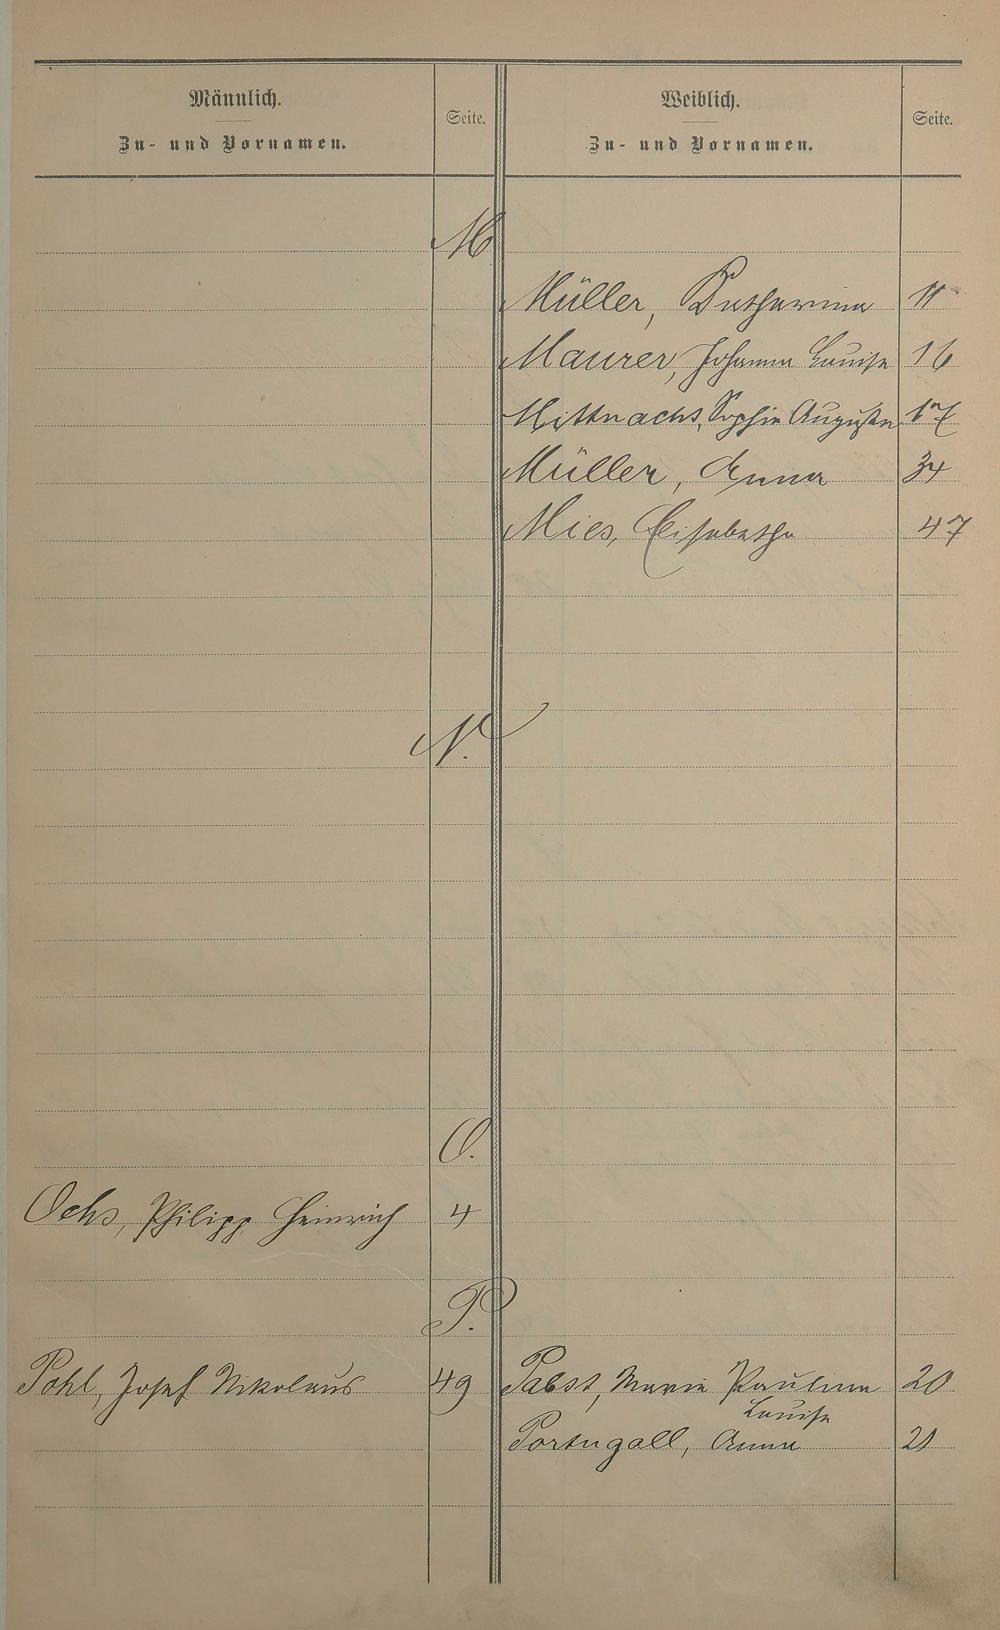 Männlich.
Zu- und Vornamen.
Seite.
Weiblich.
Zu- und Vornamen.
Seite.
M
Müller, Katharina 11
Maurer, Johanna Louise 16
Mittnacht, Sophie Auguste 17
Müller, Anna 34
Mies, Elisabetha 47
N.
O.
Ochs, Philipp Heinrich 4
P.
Pohl, Josef Nikolaus 49 Pabst, Marie Paulina 20
Louise
Portugall, Anna 21